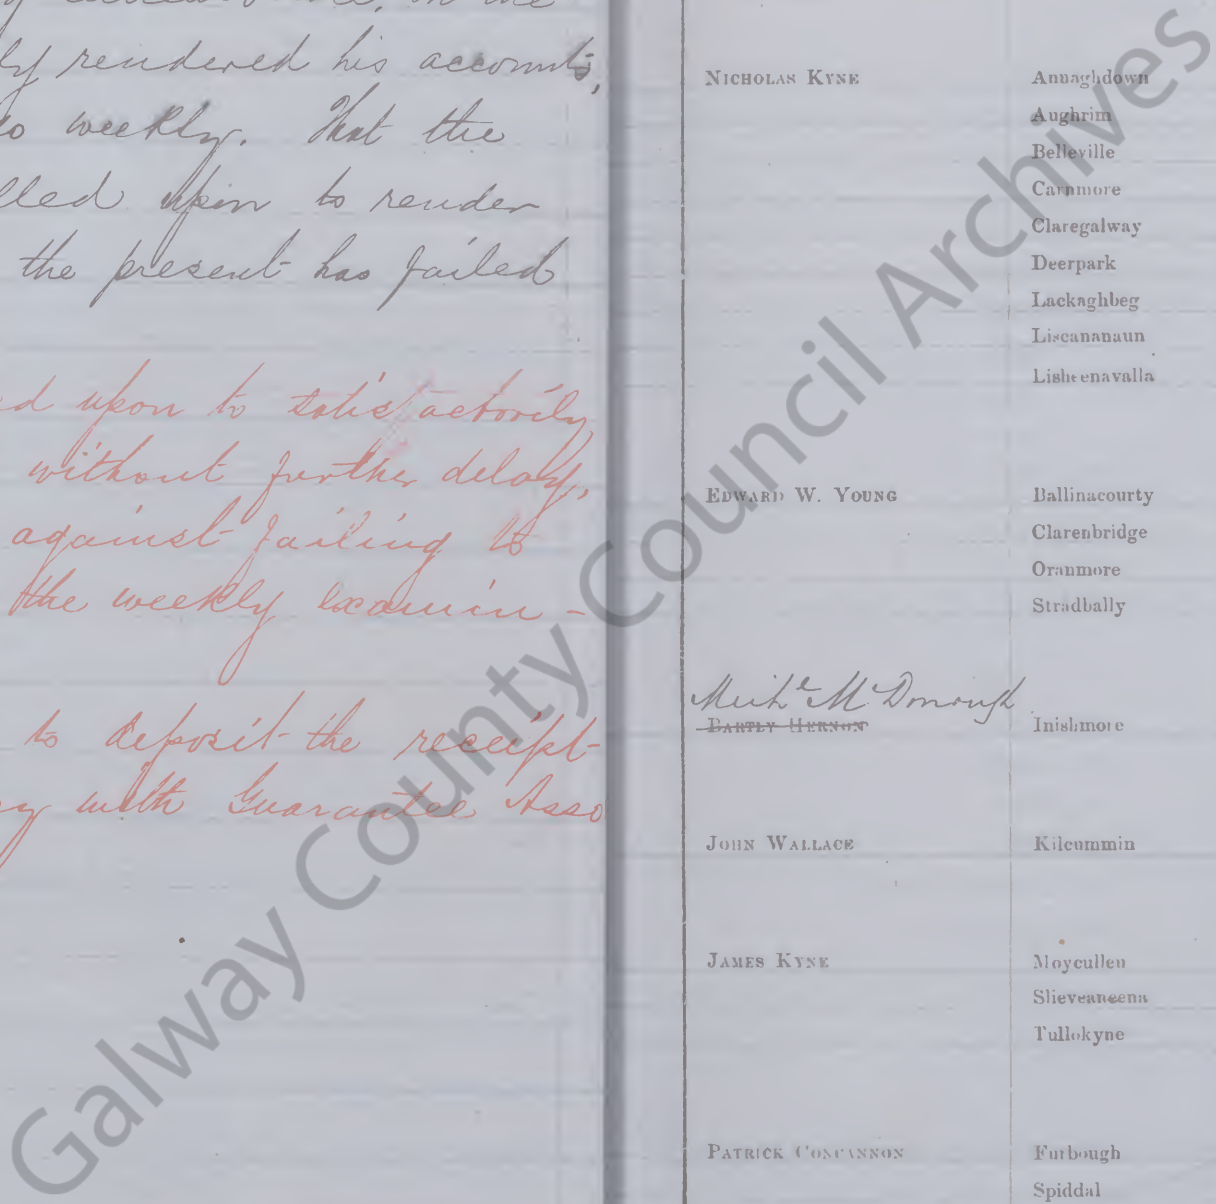 ly rendered his accounts,
weekly. That the
lled upon to render
the present has failed
ed upon to satisfactorily
without further delay,
against failing to
the weekly examin-
to deposit the receipt
with Guarantee Asso
NICHOLAS KYNE Annaghdown
Aughrim
Belleville
Carnmore
Claregalway
Deerpark
Lackaghbeg
Liscananaun
Lisheenavalla
EDWARD W. YOUNG Ballinacourty
Clarenbridge
Oranmore
Stradbally
Michl McDonough
BARTLY HERNON Inishmore
JOHN WALLACE Kilcummin
JAMES KYNE Moycullen
Slieveaneena
Tullokyne
PATRICK CONCANNON Furbough
Spiddal
Galway County Council Archives